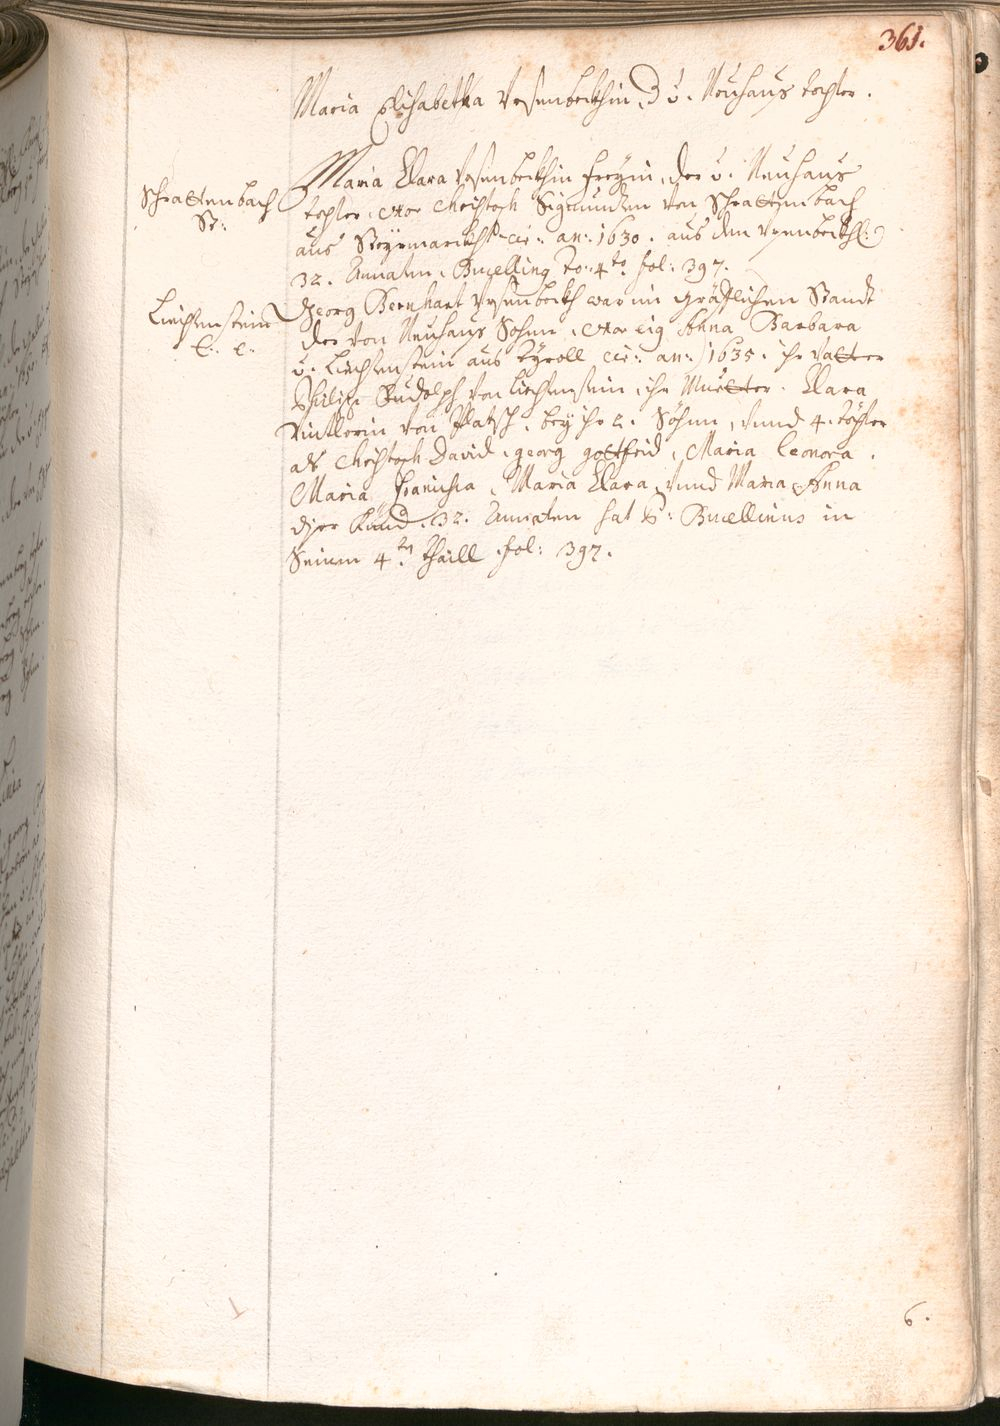 361.
Maria Elisabetha Ursenbeckhin, d v. Neuhaus tochter.
Maria Clara Ursenbeckhin Freyin, der v. Neuhaus
Schrattenbach
St:
tochter, Christoph Sigmunden von Schrattenbach
aus Steyrmarckht an: 1630. aus dem Ursenbeckhl:
32. Annaten, Bucelling to: 4to fol: 397.
Liechtenstein
C. C.
Georg Bernhart Ursenbeckh war im Gräfflichen Standt
der von Neuhaus Sohn, Anna Barbara
v. Liechtenstein aus Tyroll an: 1635. ihr vatter
Philipp Rudolph von Liechtenstein, ihr Muetter. Clara
Vintlerin von Platsch, bey ihr 2. Söhne, vnnd 4. töchter
als Christoph David, georg gottfrid, Maria Leonora.
Maria Francisca, Maria Clara, vnnd Maria Anna
diser Künd. 32. Annaten hat P: Bucellinus in
Seinem 4ten thaill fol: 397.
6.